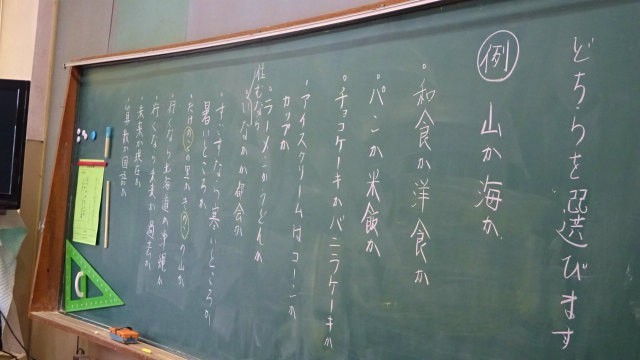 どちらを選びます
例 山か海か
・和食か洋食か
・パンか米飯か
・チョコケーキかバニラケーキか
・アイスクリームはコーンか
カップか
・ラーメンかうどんか
住むなら
いなかか都会か
すごすなら寒いところか
暑いところか
・たけのこの里かきのこの山か
・行くなら北海道か沖縄か
・行くなら未来か過去か
・未来か現在か
・算数か国語か